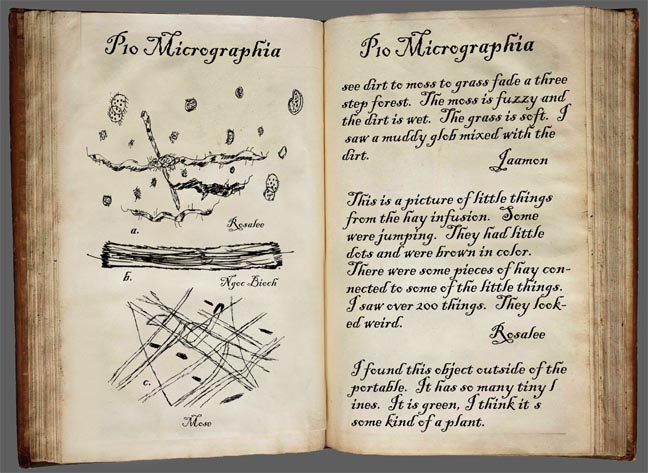 P10 Micrographia
a.
Rosalee
b.
Ngoc Bioch
c.
Mose
P10 Micrographia
see dirt to moss to grass fade a three
step forest. The moss is fuzzy and
the dirt is wet. The grass is soft. I
saw a muddy glob mixed with the
dirt.
Jaamon
This is a picture of little things
from the hay infusion. Some
were jumping. They had little
dots and were brown in color.
There were some pieces of hay con-
nected to some of the little things.
I saw over 200 things. They look-
ed weird.
Rosalee
I found this object outside of the
portable. It has so many tiny l
ines. It is green, I think it s
some kind of a plant.